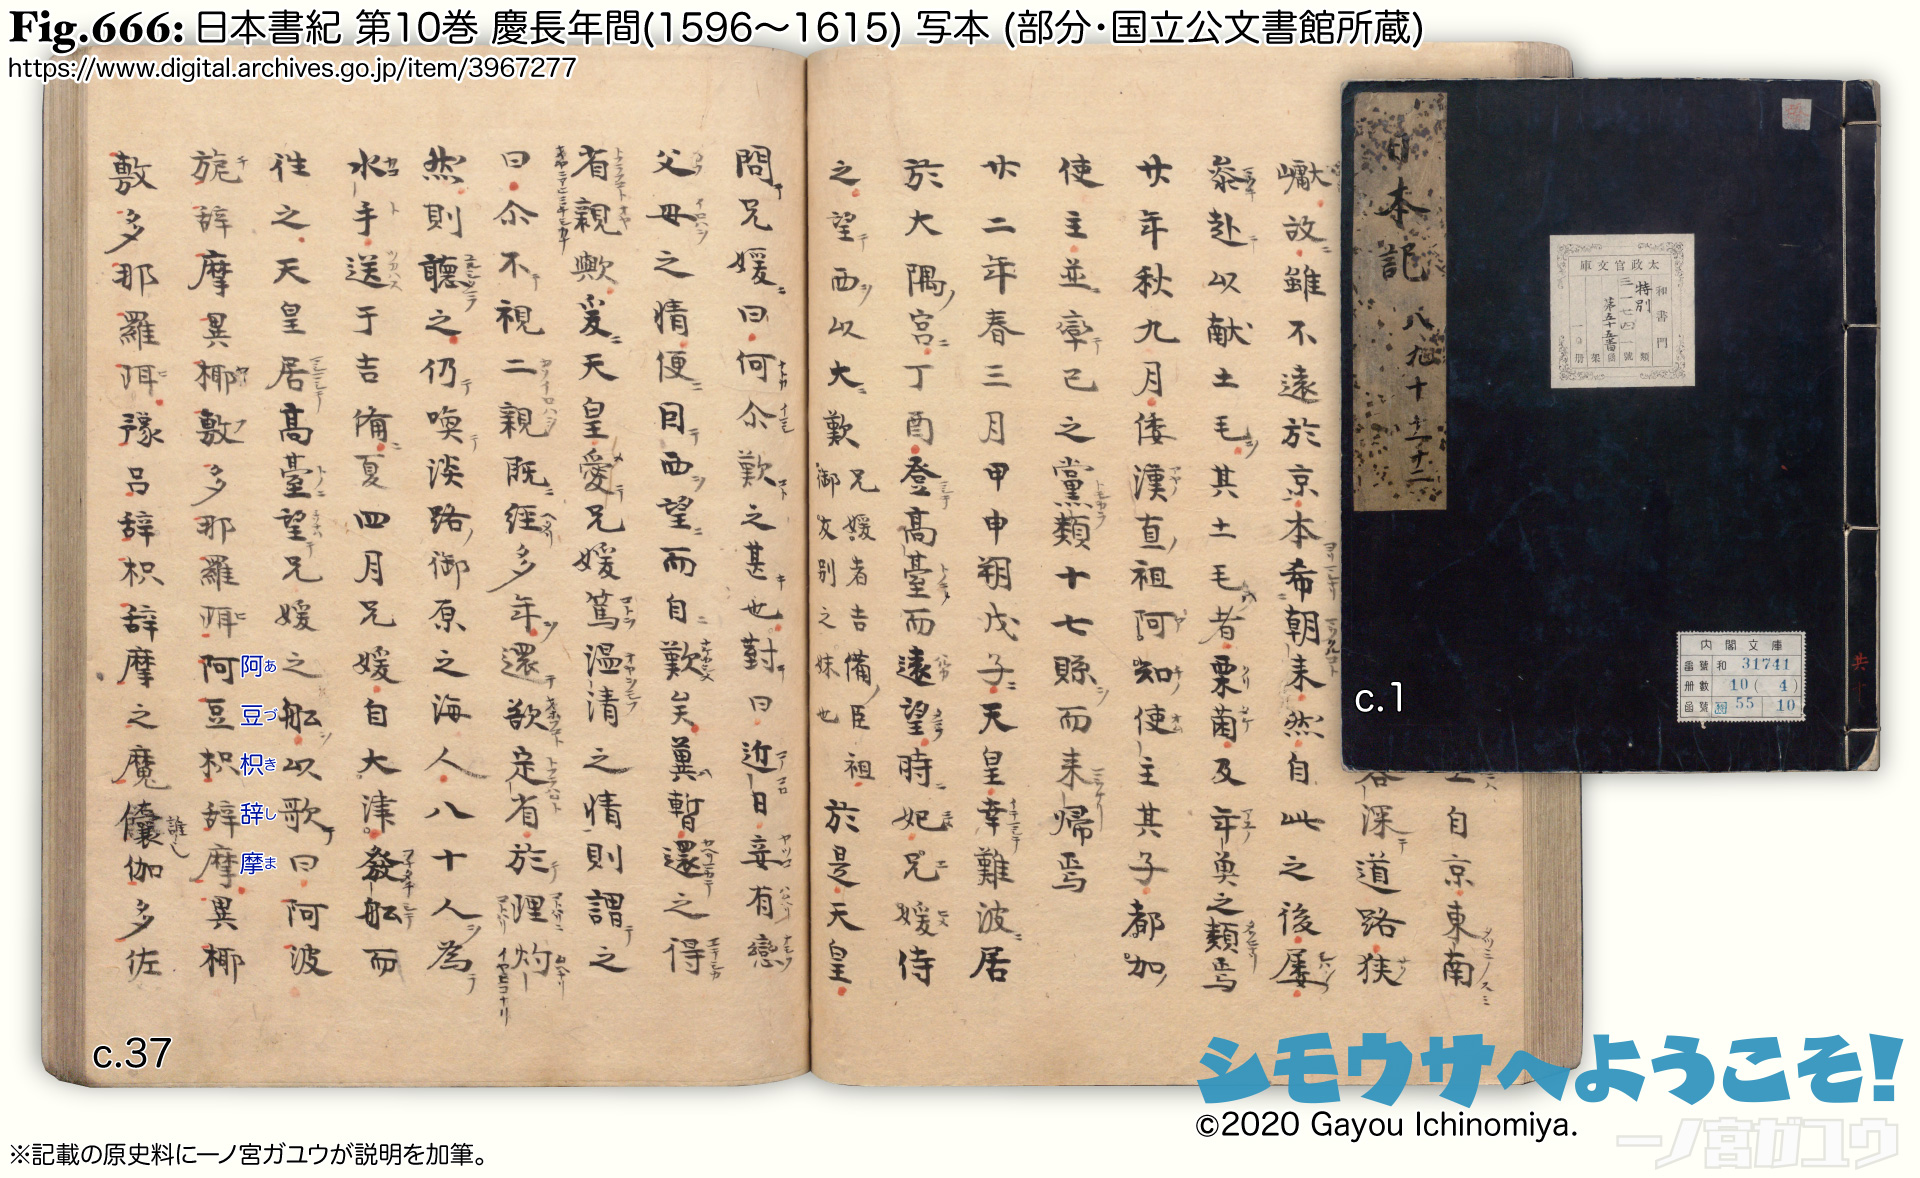 Fig.666: 日本書紀 第10巻 慶長年間(1596〜1615) 写本 (部分・国立公文書館所蔵)
https://www.digital.archives.go.jp/item/3967277
日本記 八 九 十 十一 十二
太政官文庫
和書門
特別
三一七四一號
第五十五番
類
號
架
内閣文庫
番號 和 31741
册數 10(4)
函號 特 55 10
共十
c.1
自京東南
谷深道路狹
巘故雖不遠於京本希朝来然自此之後屡
叅赴以献土毛其土毛者栗菌及年魚之類焉
廿年秋九月倭漢直祖阿知使主其子都加
使主並率己之黨類十七縣而来帰焉
廿二年春三月甲申朔戊子天皇幸難波居
於大隅宮丁酉登高臺而遠望時妃兄媛侍
之望西以大歎兄媛者吉備臣祖御友別之妹也於是天皇
問兄媛曰何尒歎之甚也對曰近日妾有戀
父母之情便因西望而自歎矣冀暫還之得
省親歟爰天皇愛兄媛篤温凊之情則謂之
曰尒不視二親既經多年還欲定省於理灼
然則聽之仍喚淡路御原之海人八十人為
水手送于吉備夏四月兄媛自大津發舩而
徃之天皇居高臺望兄媛之舩以歌曰阿波
旎辞摩異椰敷多那羅弭阿豆枳辞摩異椰
敷多那羅弭豫呂辞枳辞摩之魔儺伽多佐
阿あ
豆づ
枳き
辞し
摩ま
c.37
シモウサへようこそ!
©2020 Gayou Ichinomiya.
一ノ宮ガユウ
※記載の原史料に一ノ宮ガユウが説明を加筆。